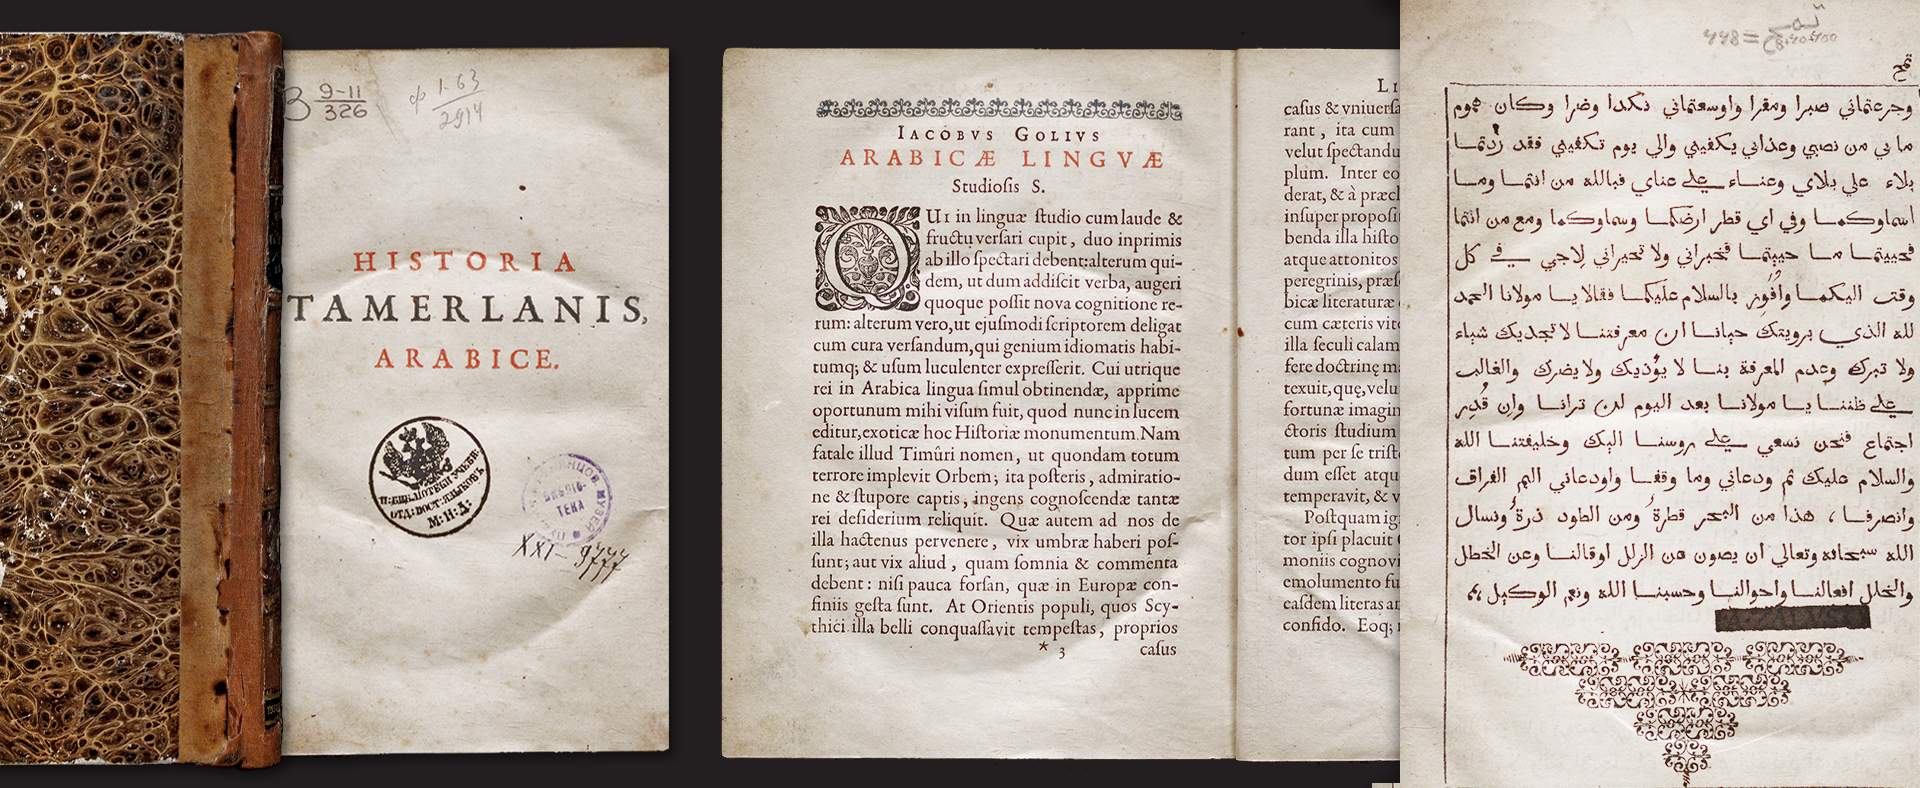 9-11
326
ф 1-63
2914
HISTORIA
TAMERLANIS,
ARABICE.
БИБЛІОТЕКИ УЧЕБН:
ОТД: ВОСТ: ЯЗЫКОВЪ
М. И. Д.
МУЗЕЙ
ТЕКА
XXI-9777
IACOBVS GOLIVS
ARABICÆ LINGVÆ
Studiosis S.
QUI in linguæ ſtudio cum laude &
fructu verſari cupit, duo inprimis
ab illo ſpectari debent: alterum qui-
dem, ut dum addiſcit verba, augeri
quoque poſſit nova cognitione re-
rum: alterum vero, ut ejuſmodi ſcriptorem deligat
cum cura verſandum, qui genium idiomatis habi-
tumq; & uſum luculenter expreſſerit. Cui utrique
rei in Arabica lingua ſimul obtinendæ, apprime
oportunum mihi viſum fuit, quod nunc in lucem
editur, exoticæ hoc Hiſtoriæ monumentum. Nam
fatale illud Timûri nomen, ut quondam totum
terrore implevit Orbem; ita poſteris, admiratio-
ne & ſtupore captis, ingens cognoſcendæ tantæ
rei deſiderium reliquit. Quæ autem ad nos de
illa hactenus pervenere, vix umbræ haberi poſ-
ſunt; aut vix aliud, quam ſomnia & commenta
debent: niſi pauca forſan, quæ in Europæ con-
finiis geſta ſunt. At Orientis populi, quos Scy-
thici illa belli conquaſſavit tempeſtas, proprios
* 3 caſus
LI
caſus & vniuerſa
rant, ita cum
velut ſpectandu
plum. Inter eo
derat, & à præcl
inſuper propoſi
benda illa hiſto
atque attonitos
peregrinis, præſ
bicæ literaturæ
cum cæteris vite
illa ſeculi calam
fere doctrinę m
texuit, quę, velu
fortunæ imagin
ctoris ſtudium
tum per ſe triſt
dum eſſet atqu
temperavit, & v
Poſtquam ig
tor ipſi placuit
moniis cognovi
emolumento fu
eaſdem literas ar
confido. Eoq;
448 = 8.40.400
وجرعتماني صبرا ومقرا واوسعتماني نكدا وضرا وكان هموم
ما بي من نصبي وعذابي يكفيني والي يوم تكفيني فقد زدتما
بلاء علي بلاي وعناء علي عناي فبالله من انتما وما
اسماوكما وفي اي قطر ارضكما وسماوكما ومع من انتما
فحييتما ما حييتما فخبراني ولا تحيراني لاجي في كل
وقت اليكما وأفوز بالسلام عليكما فقالا يا مولانا الحمد
لله الذي برويتك حيانا ان معرفتنا لا تجديك شياء
ولا تبرك وعدم المعرفة بنا لا يؤذيك ولا يضرك والغالب
علي ظننا يا مولانا بعد اليوم لن ترانا وان قُدِر
اجتماع فنحن نسعي علي روسنا اليك وخليفتنا الله
والسلام عليك ثم ودعاني وما وقفا واودعاني اليم الفراق
وانصرفا ، هذا من البحر قطرة ومن الطود ذرة ونسال
الله سبحانه وتعالي ان يصون عن الزلل اوقالنا وعن الخطل
والخلل افعالنا واحوالنا وحسبنا الله ونعم الوكيل